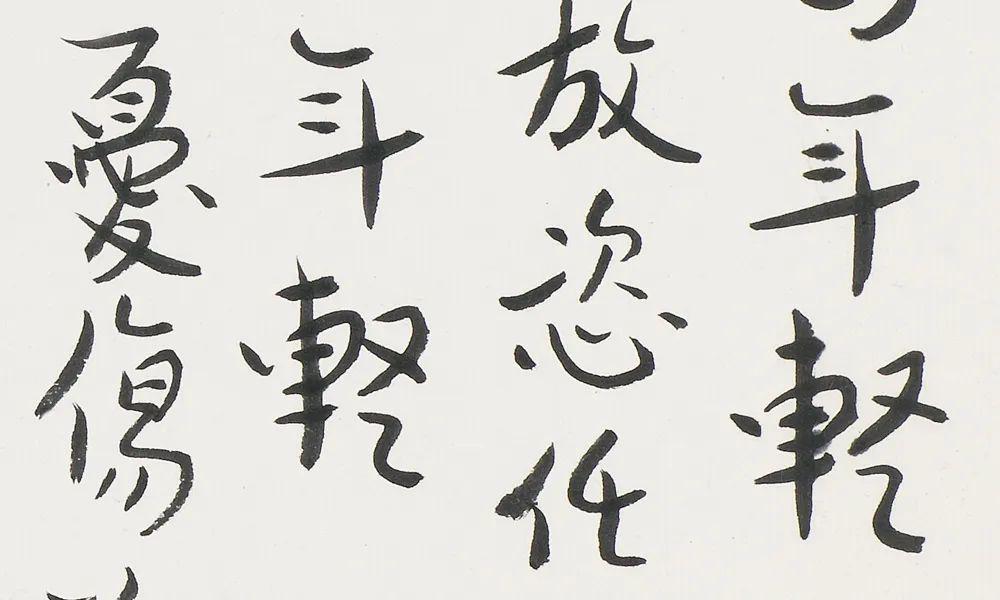 年輕
放恣任
年輕
憂傷